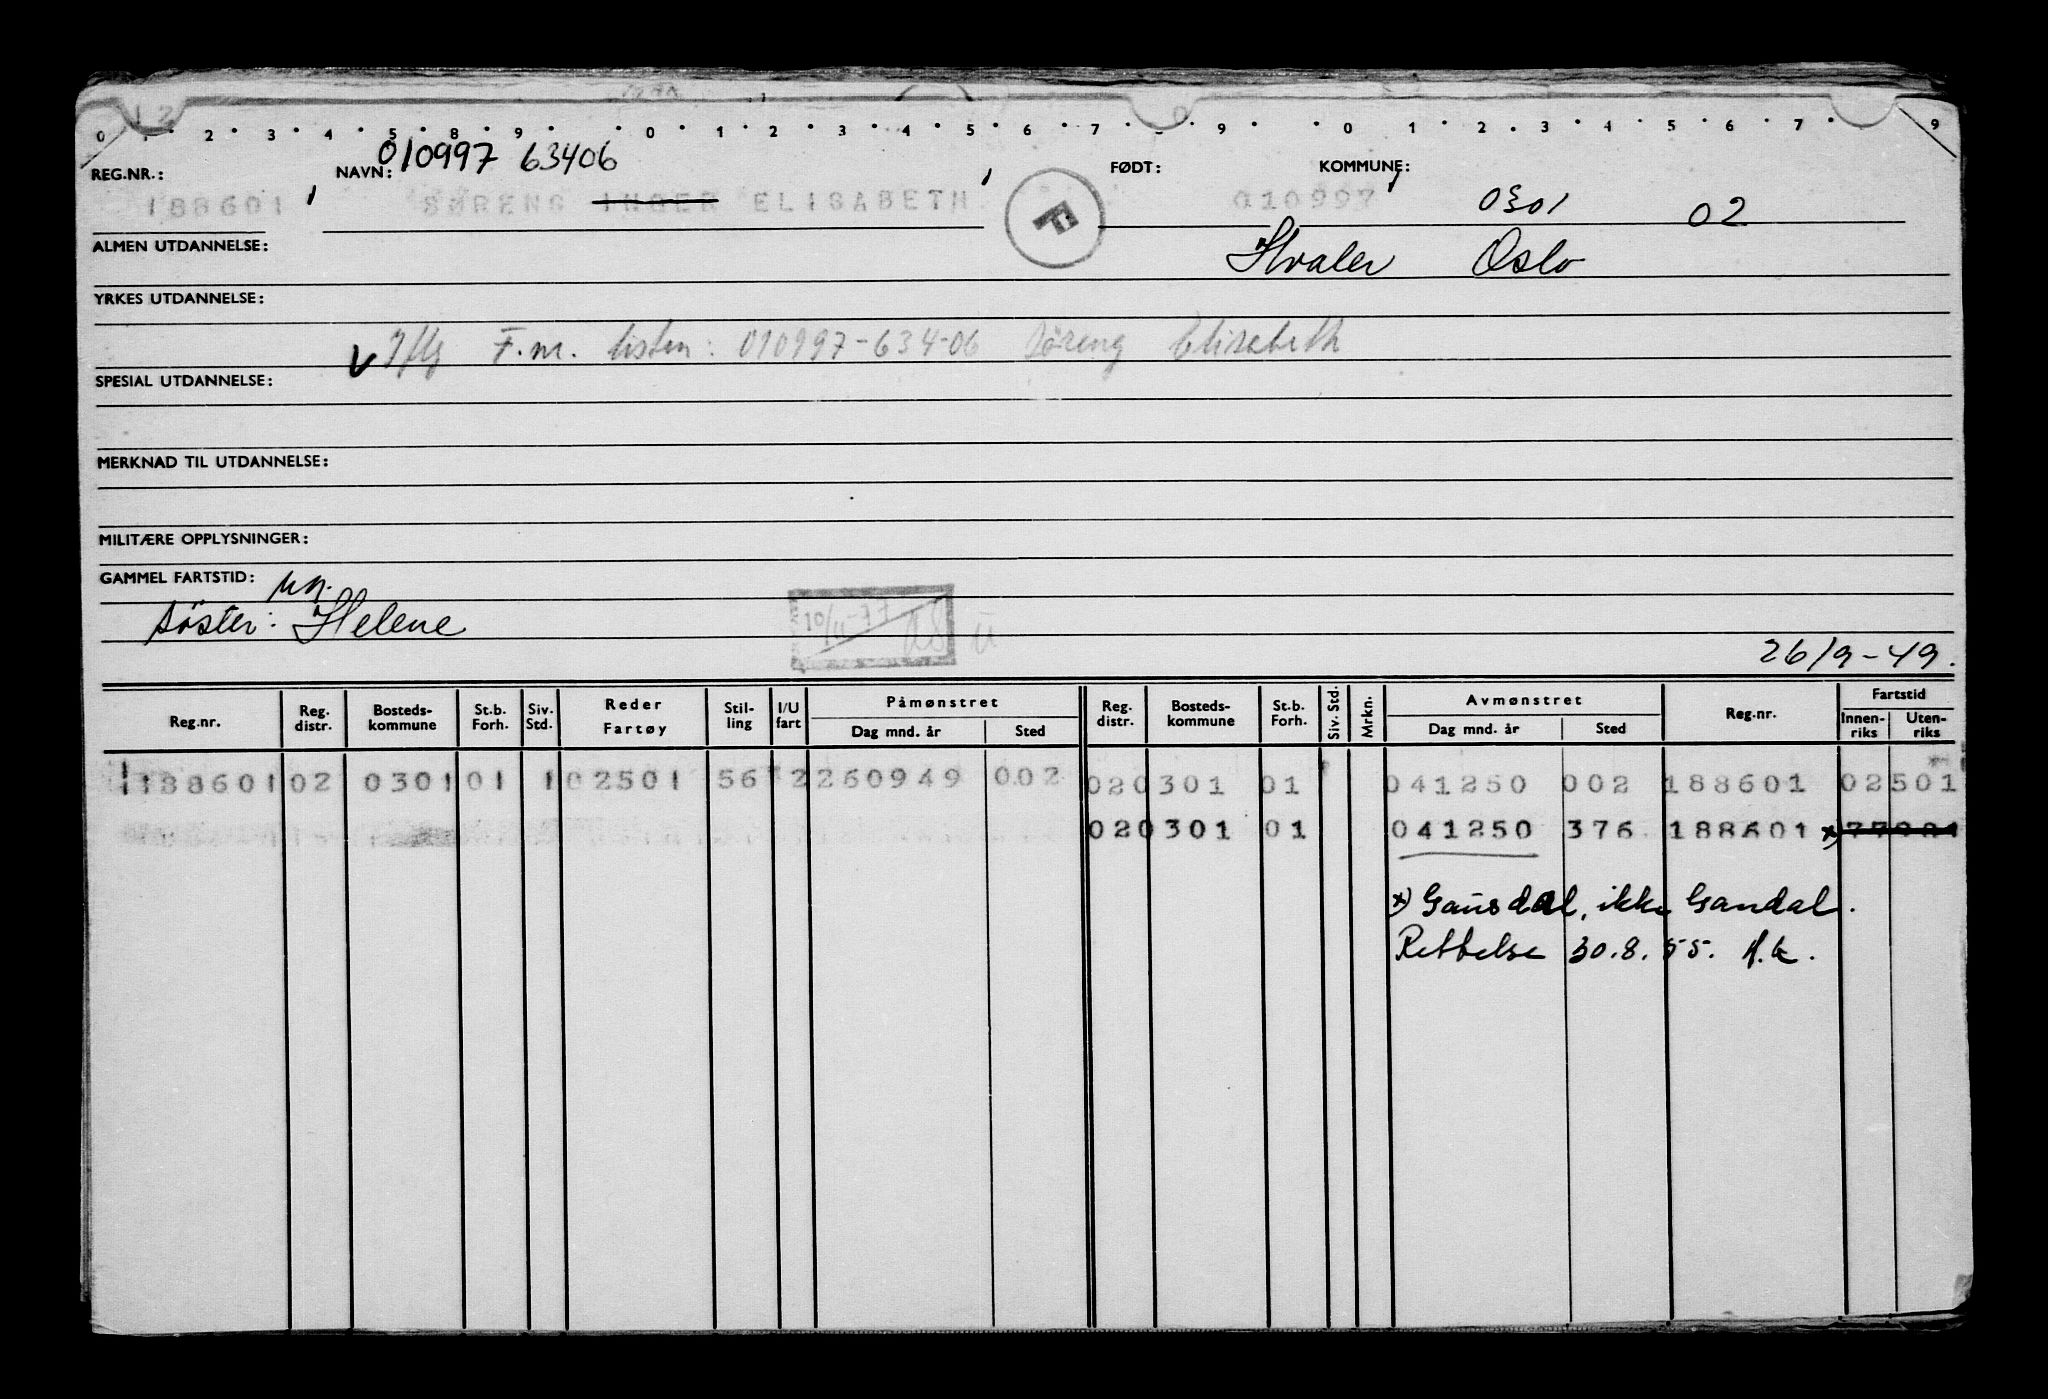 0 1 2 3 4 5 8 9 0 1 2 3 4 5 6 7 9 0 1 2 3 4 5 6 7 9
010997 63406
REG.NR.: NAVN: FØDT: KOMMUNE:
188601 SØRENG INGER ELISABETH F 010997 0301 02
ALMEN UTDANNELSE: Hvaler Oslo
YRKES UTDANNELSE:
Iflg F.m. listen: 010997-634-06 Søreng Elisabeth
SPESIAL UTDANNELSE:
MERKNAD TIL UTDANNELSE:
MILITÆRE OPPLYSNINGER:
GAMMEL FARTSTID:
søster: Helene
10/11-77
26/9-49.
Reg.nr. Reg. distr. Bosteds-kommune St.b. Forh. Siv. Std. Reder Fartøy Stil-ling I/U fart Påmønstret Dag mnd. år Sted Reg. distr. Bosteds-kommune St.b. Forh. Siv. Std. Mrkn. Avmønstret Dag mnd. år Sted Reg.nr. Fartstid Innen-riks Uten-riks
188601 02 0301 01 1 02501 56 2 260949 002 02 0301 01 041250 002 188601 02501
02 0301 01 041250 376 188601 x)
x) Gausdal, ikke Gandal.
Rettelse 30.8.55.